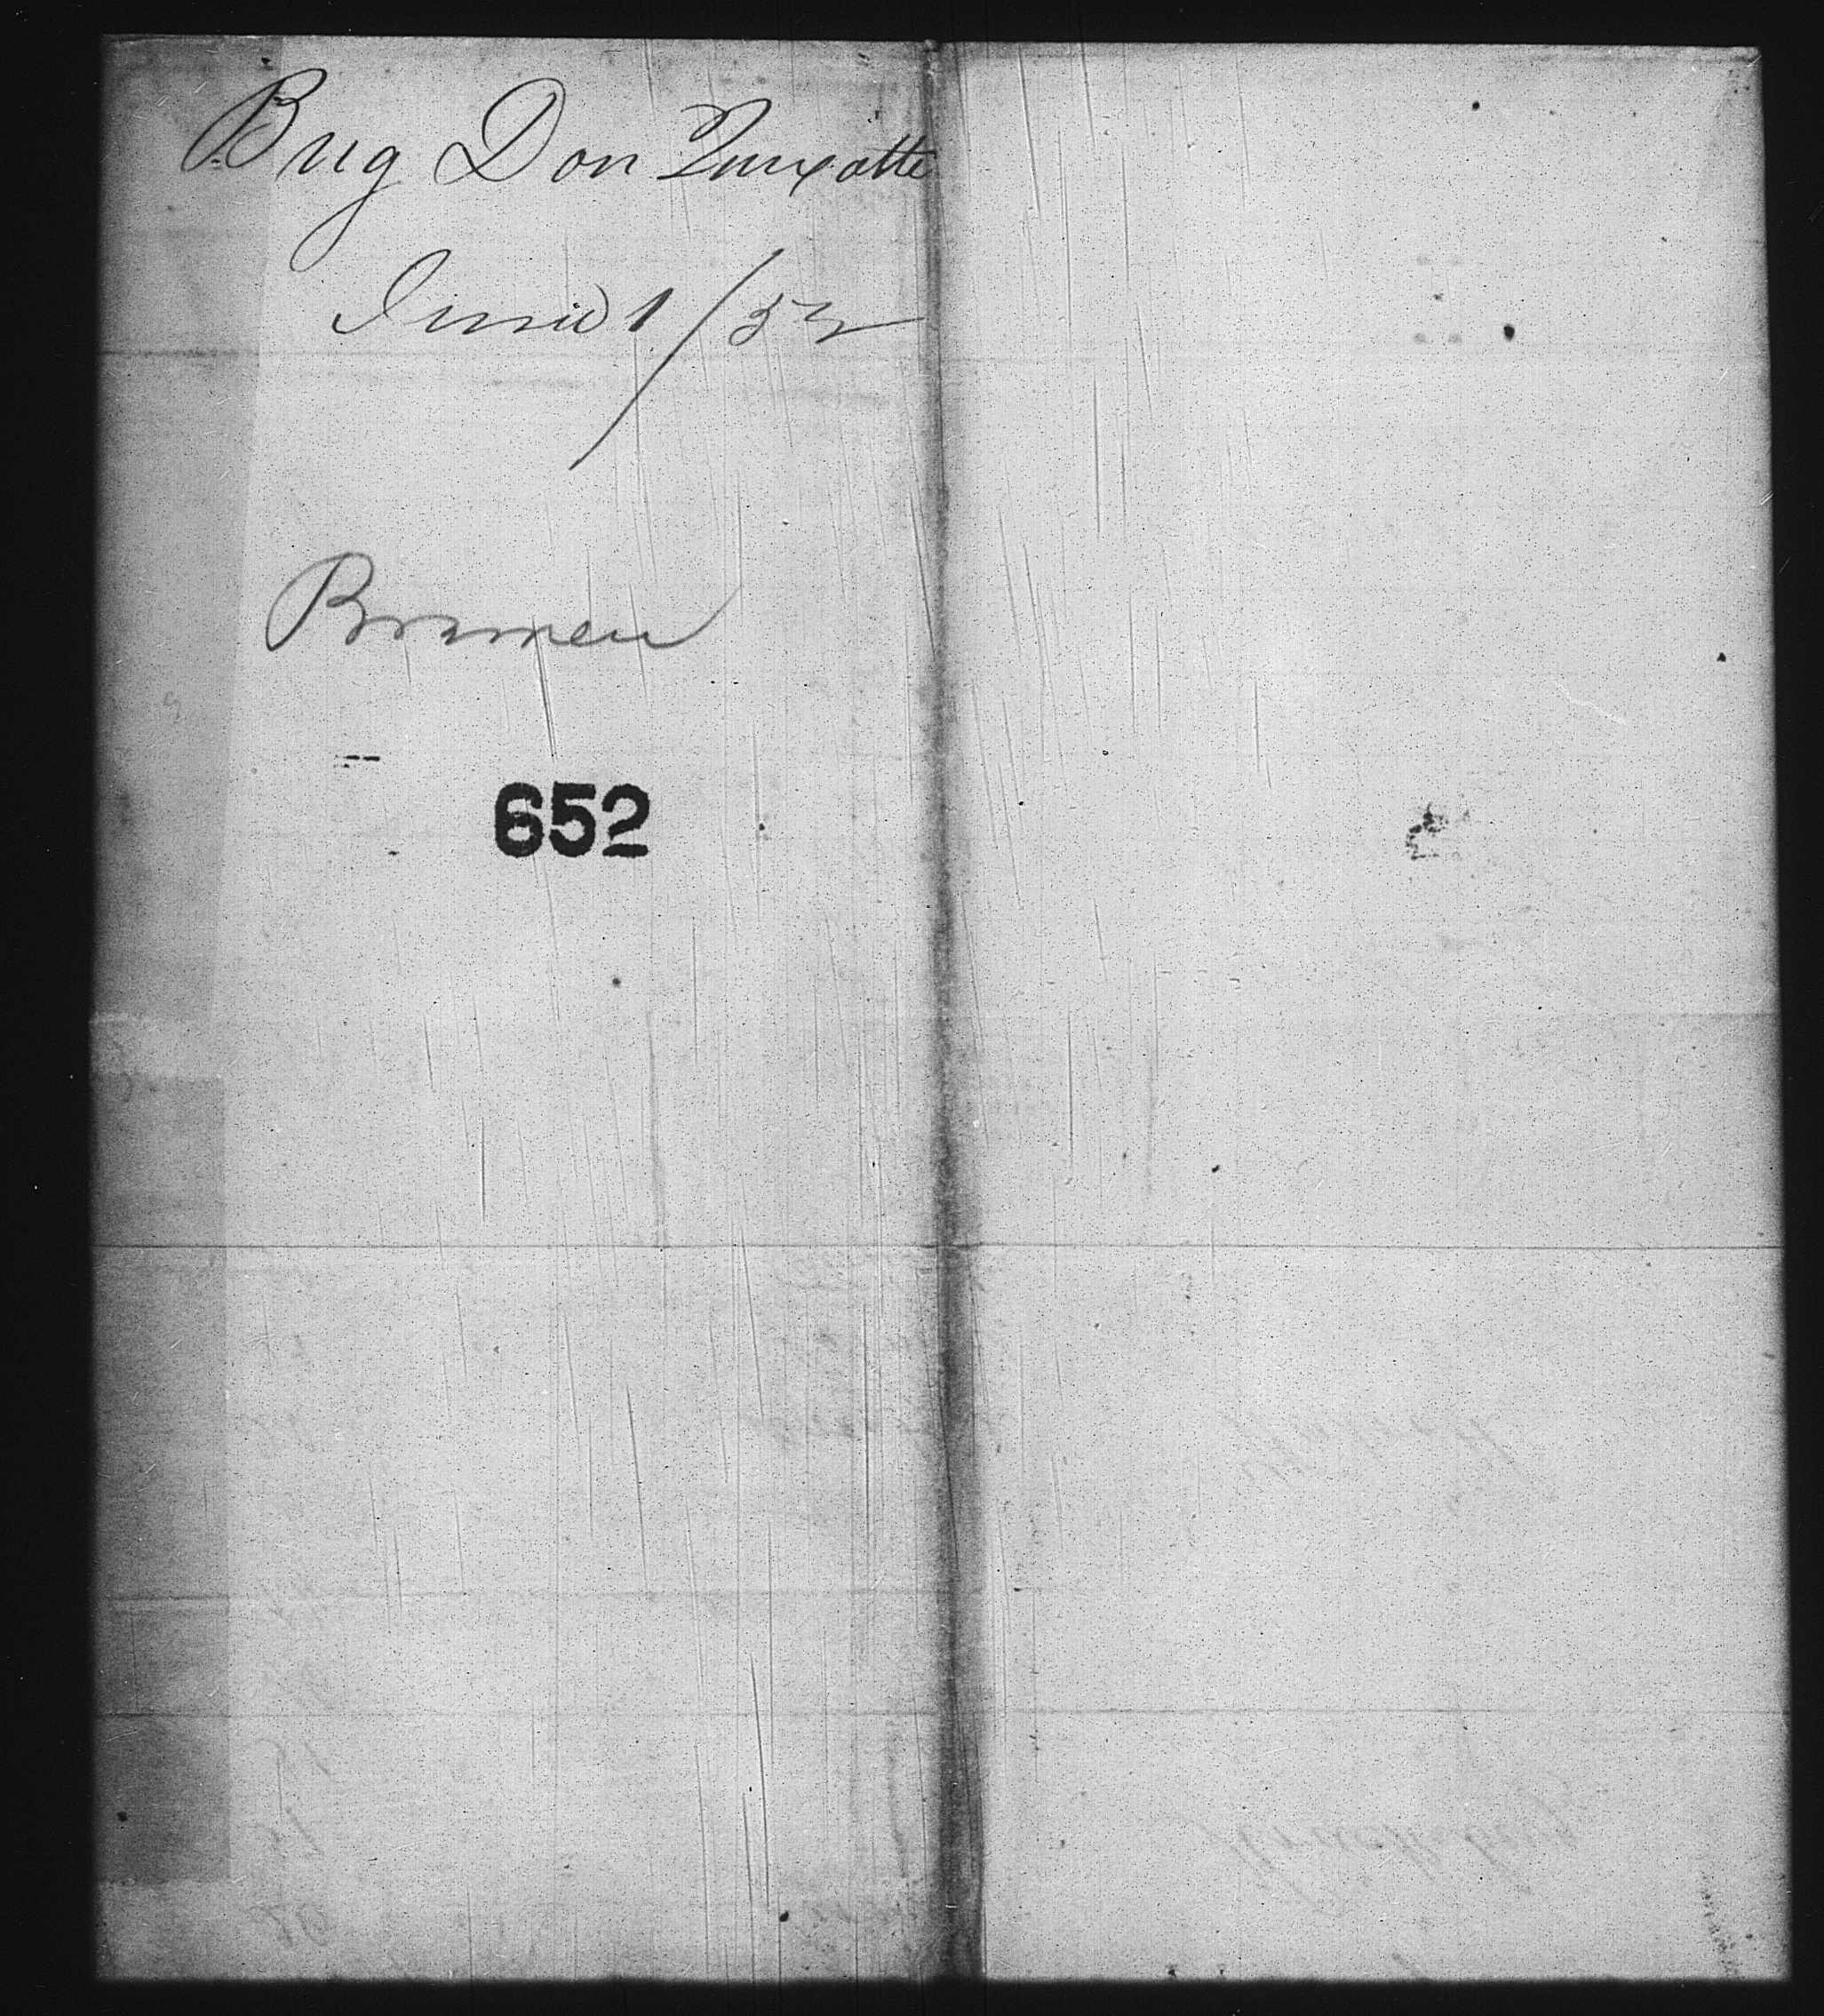 Brig Don Quixotte
June 1/53
Bremen
652